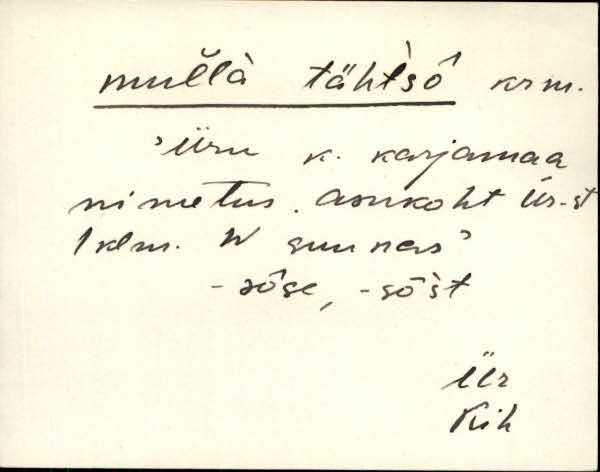 mul̆l̆à tähtsô krm.
'Üru k. karjamaa
nimetus. asukoht Ür-st
1 klm. W suunas'
-sôse, -sôst
Ür
Kih